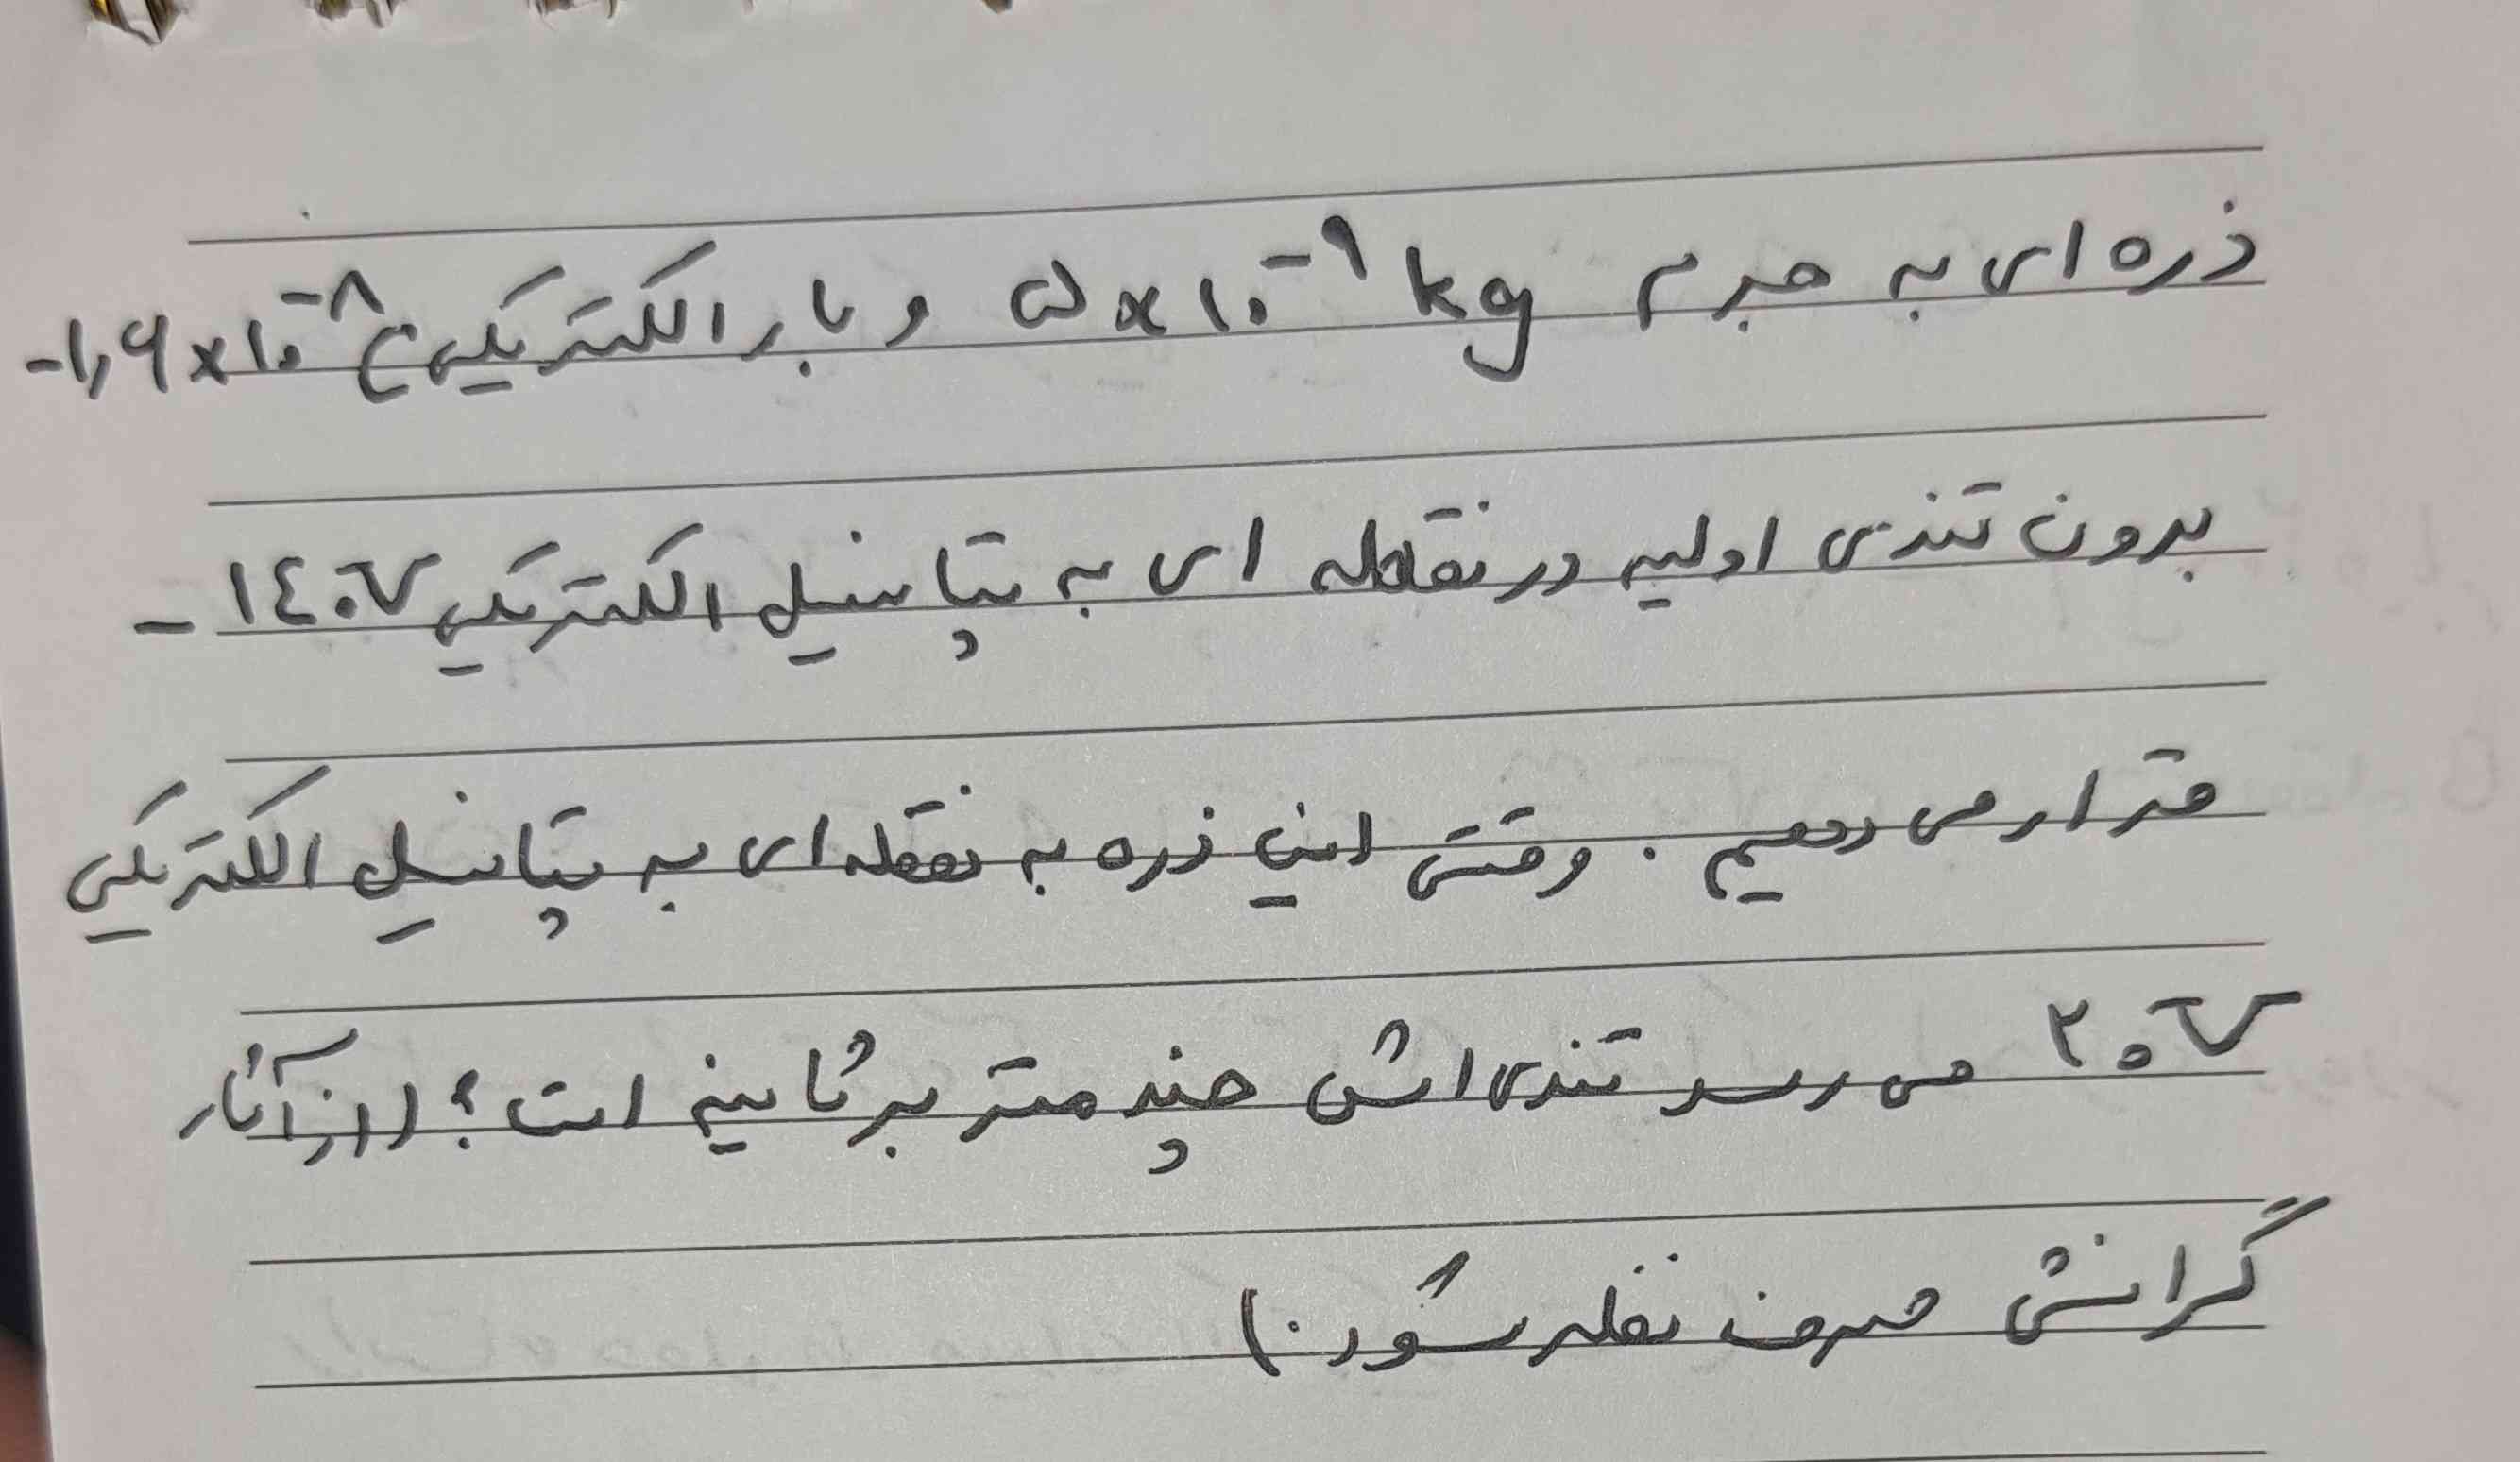 ذره ای به جرم ۵×۱۰^-۹ kg و بار الکتریکی -۱٫۶×۱۰^-۸ C
بدون تندی اولیه در نقطه ای به پتانسیل الکتریکی -۱٤۰V
قرار می دهیم. وقتی این ذره به نقطه ای به پتانسیل الکتریکی
۲۰V می رسد تندی اش چند متر بر ثانیه است؟ (از آثار
گرانش صرف نظر شود.)